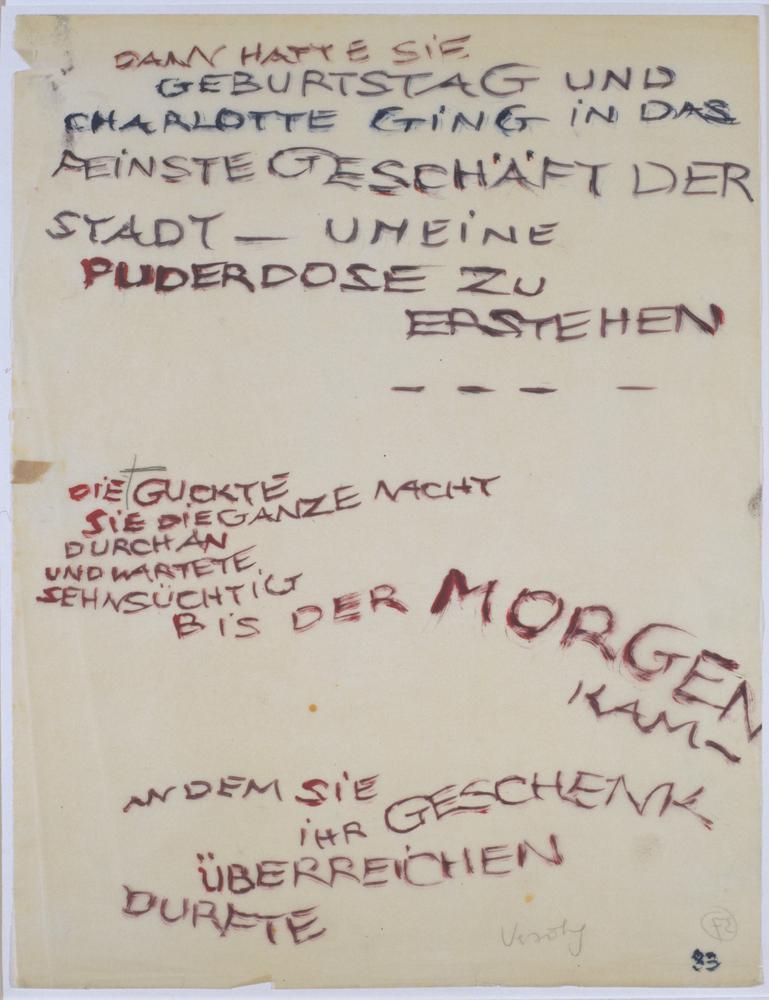 DANN HATTE SIE
GEBURTSTAG UND
CHARLOTTE GING IN DAS
FEINSTE GESCHÄFT DER
STADT — UM EINE
PUDERDOSE ZU
ERSTEHEN
— — — —
DIE GUCKTE
SIE DIE GANZE NACHT
DURCH AN
UND WARTETE
SEHNSÜCHTIG
BIS DER MORGEN
KAM-
AN DEM SIE
IHR GESCHENK
ÜBERREICHEN
DURFTE
83